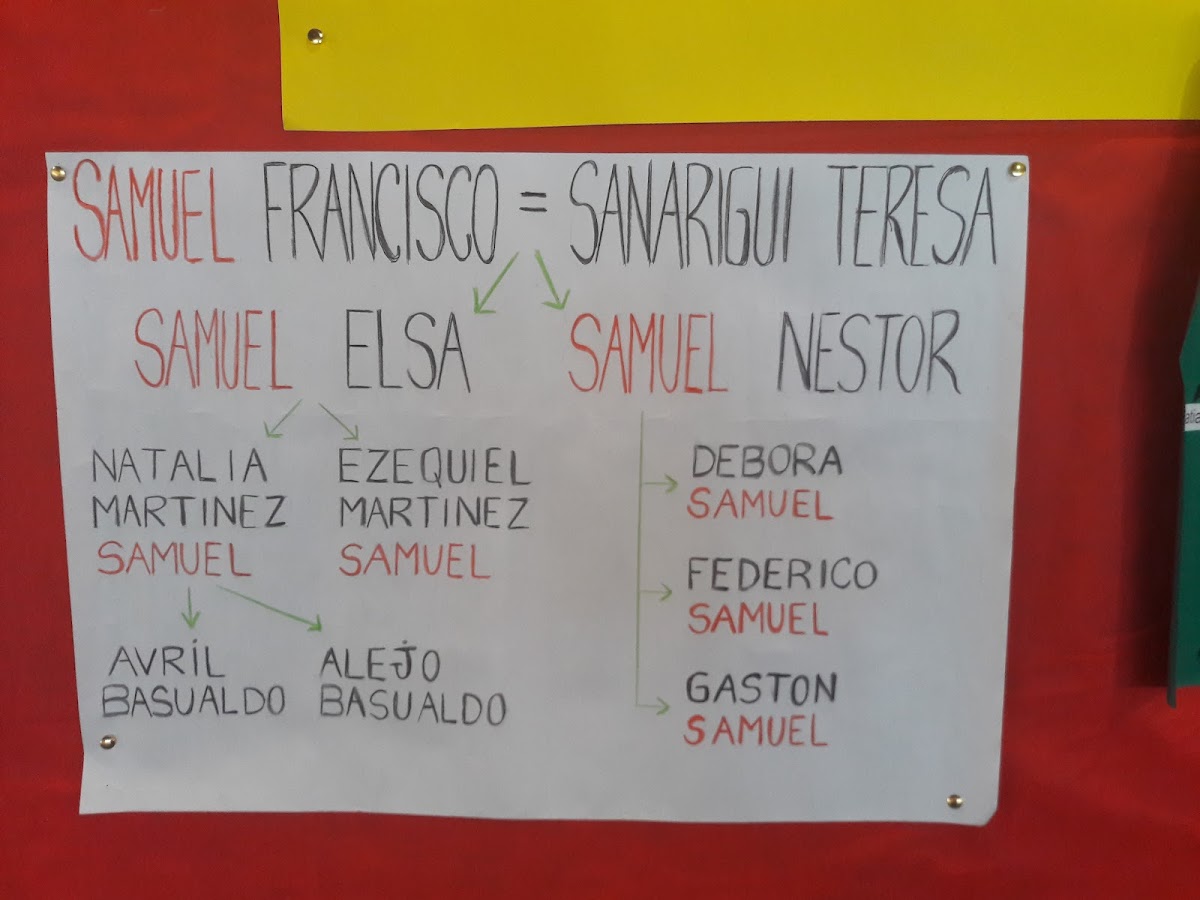 SAMUEL FRANCISCO = SANARIGUI TERESA
SAMUEL ELSA
SAMUEL NESTOR
NATALIA
MARTINEZ
SAMUEL
EZEQUIEL
MARTINEZ
SAMUEL
AVRÍL
BASUALDO
ALEJO
BASUALDO
DEBORA
SAMUEL
FEDERICO
SAMUEL
GASTON
SAMUEL